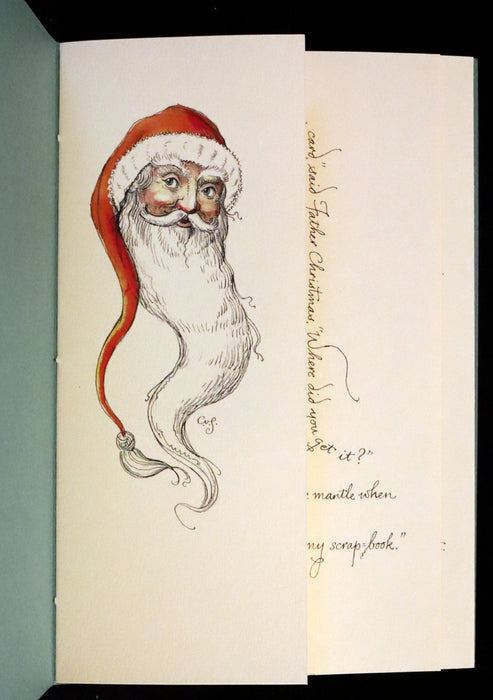 card," said Father Christmas. "Where did you get it?"
mantle when
my scrap-book."